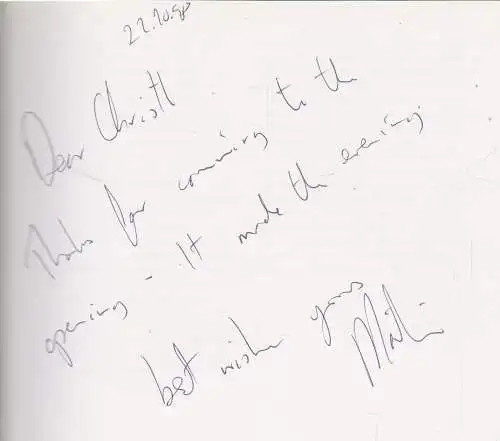 22.10.98
Dear Christl
Thanks for comming to the
opening - It made the evening.
best wishes yours
Martin